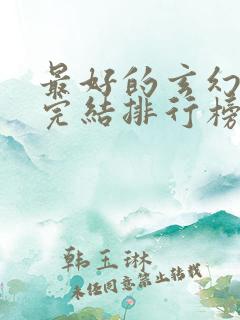 最好的玄幻
完結排行榜
韩玉琳
未经同意禁止转载